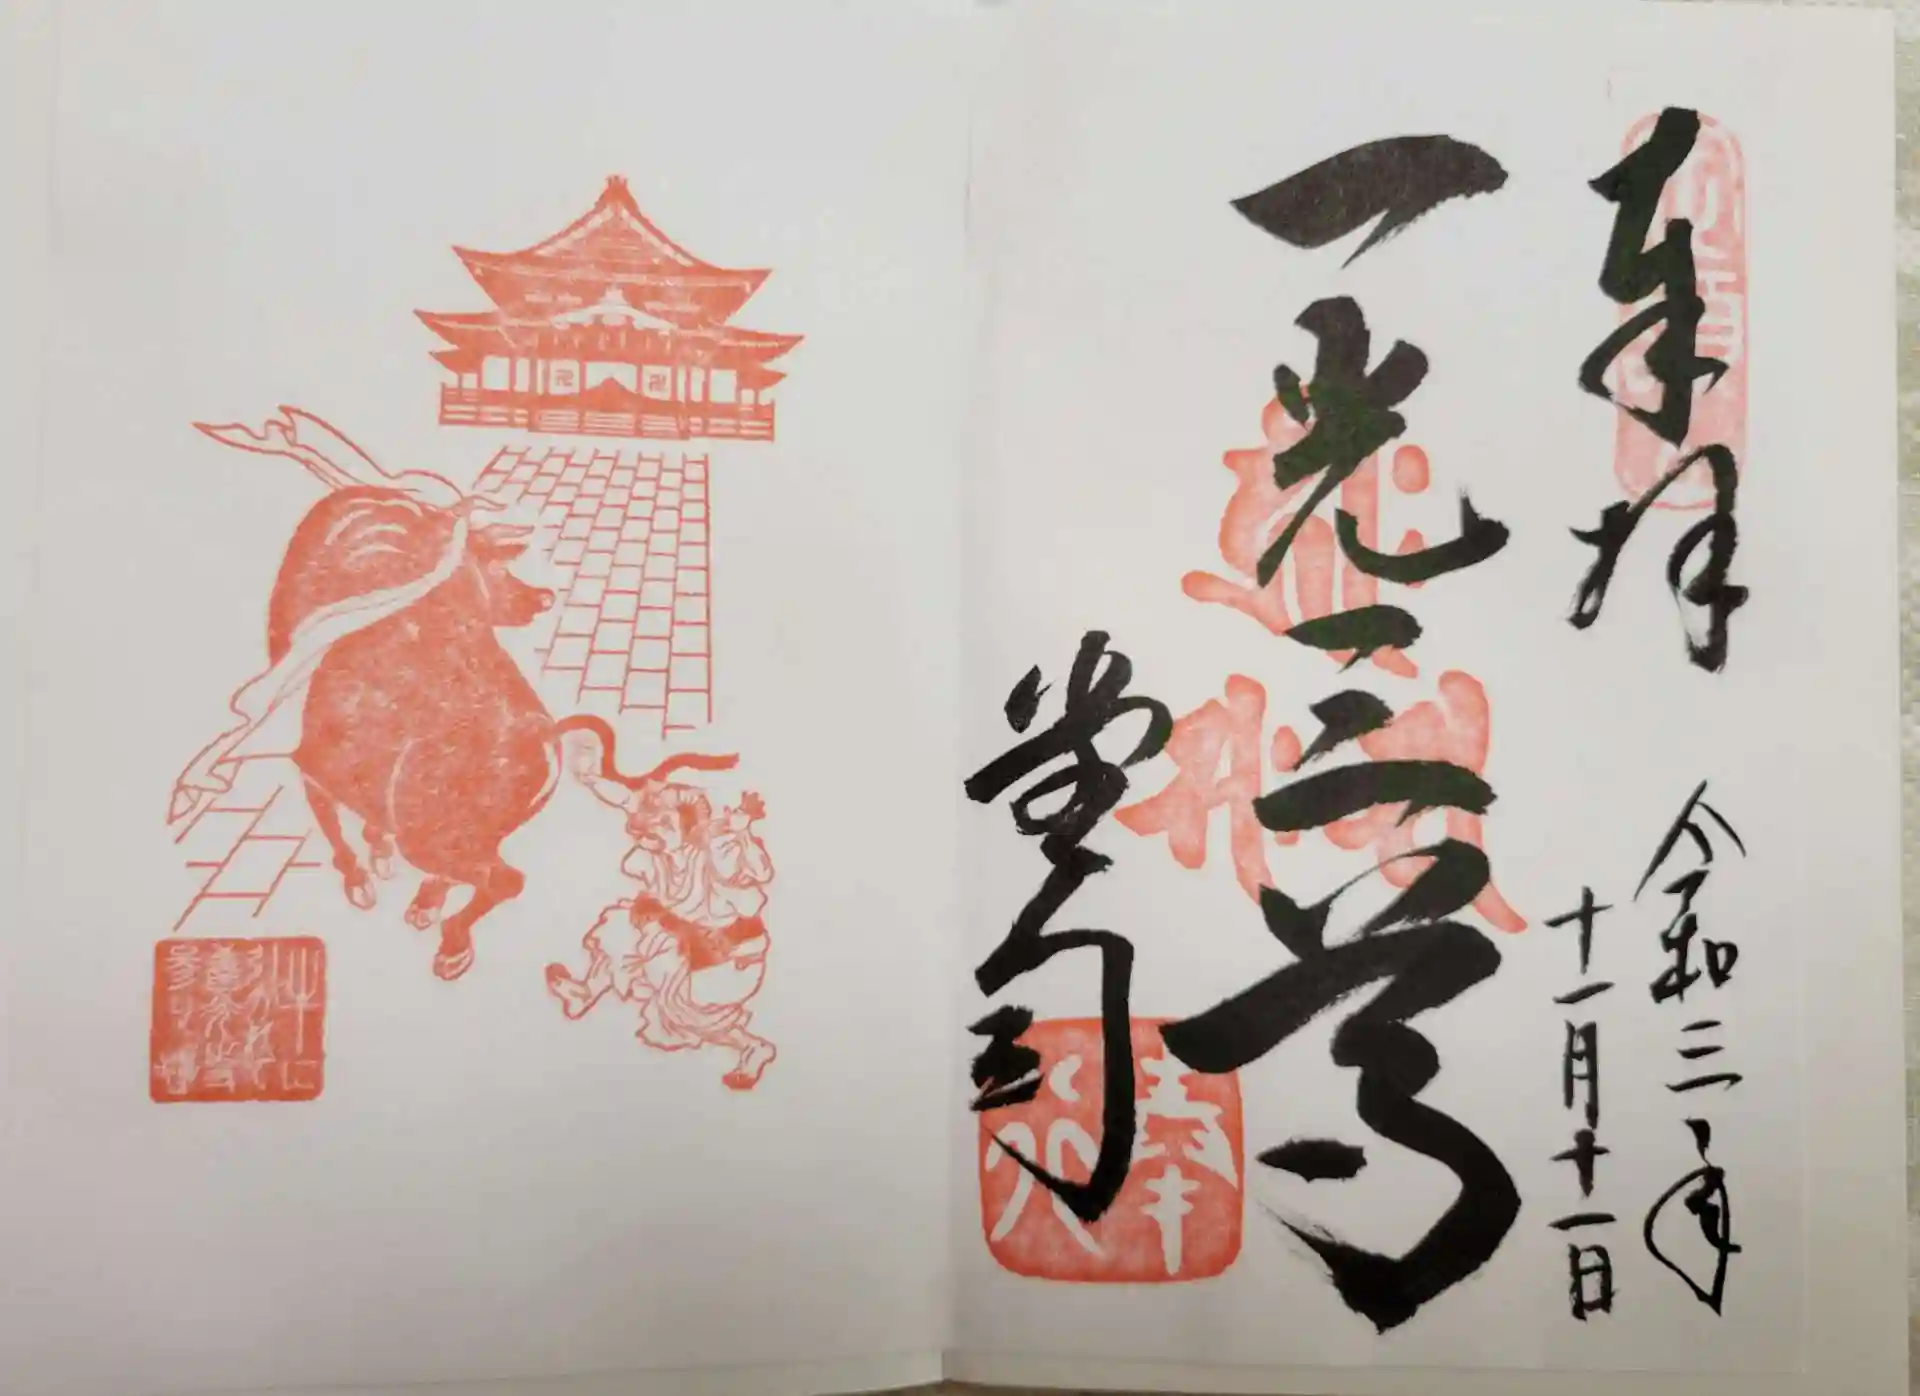 奉拝
令和三年
十一月十一日
一光三尊
堂司
牛に
引かれて
善光寺